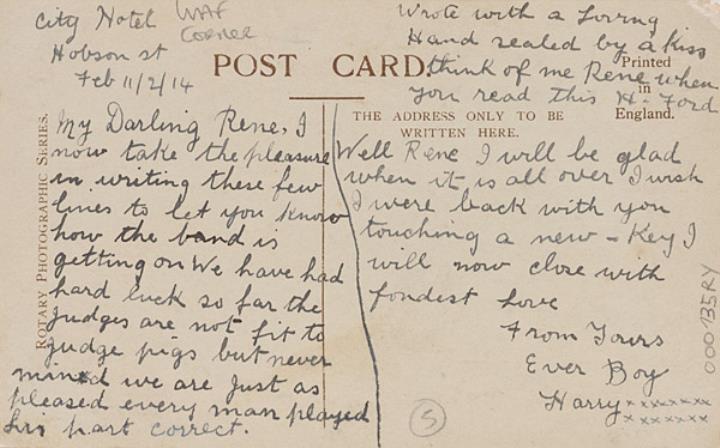 City Hotel
Hobson st
Feb 11/2/14
WAF
CORNER
Wrote with a Loving
Hand sealed by a Kiss
think of me Rene when
you read this H. Ford
POST CARD.
Printed
in
England.
THE ADDRESS ONLY TO BE
WRITTEN HERE.
ROTARY PHOTOGRAPHIC SERIES.
My Darling Rene, I
now take the pleasure
in writing these few
lines to let you know
how the band is
getting on We have had
hard luck so far the
judges are not fit to
judge pigs but never
mind we are Just as
pleased every man played
his part correct.
Well Rene I will be glad
when it is all over I wish
I were back with you
touching a new - Key I
will now close with
fondest Love
From Yours
Ever Boy
Harry xxxxxxx
xxxxxxx
5
000135RY